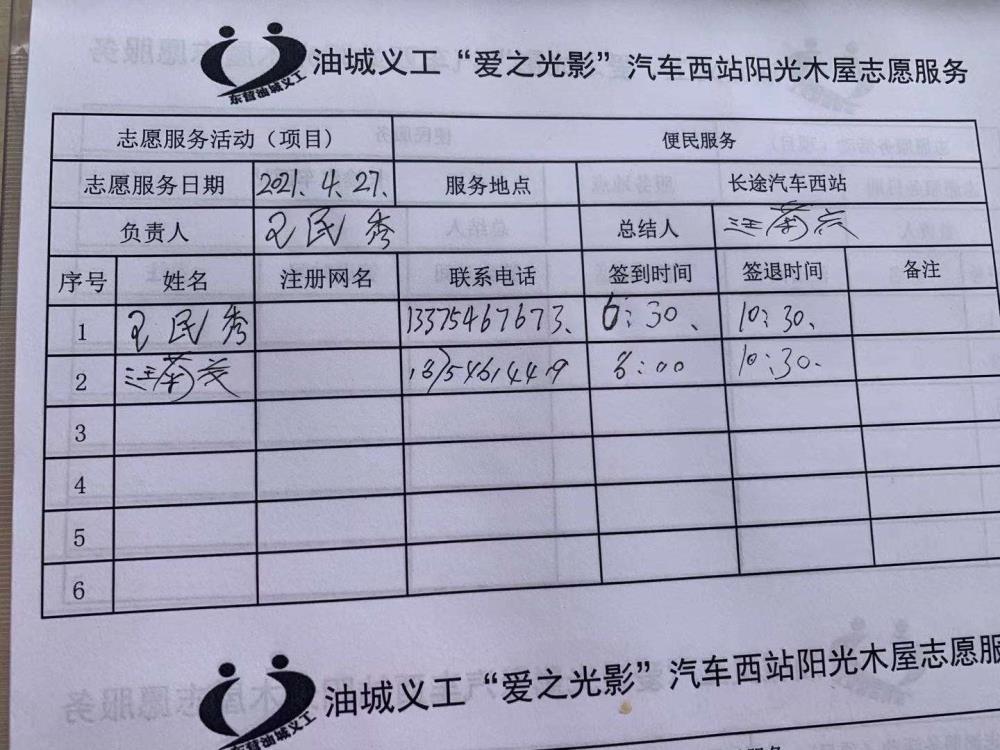 油城义工“爱之光影”汽车西站阳光木屋志愿服务
东营油城义工
志愿服务活动（项目） 便民服务
志愿服务日期 2021.4.27. 服务地点 长途汽车西站
负责人 王民秀 总结人 汪菊
序号 姓名 注册网名 联系电话 签到时间 签退时间 备注
1 王民秀 13375467673、 6:30、 10:30、
2 汪菊 18754614419 8:00 10:30.
3
4
5
6
油城义工“爱之光影”汽车西站阳光木屋志愿服
东营油城义工